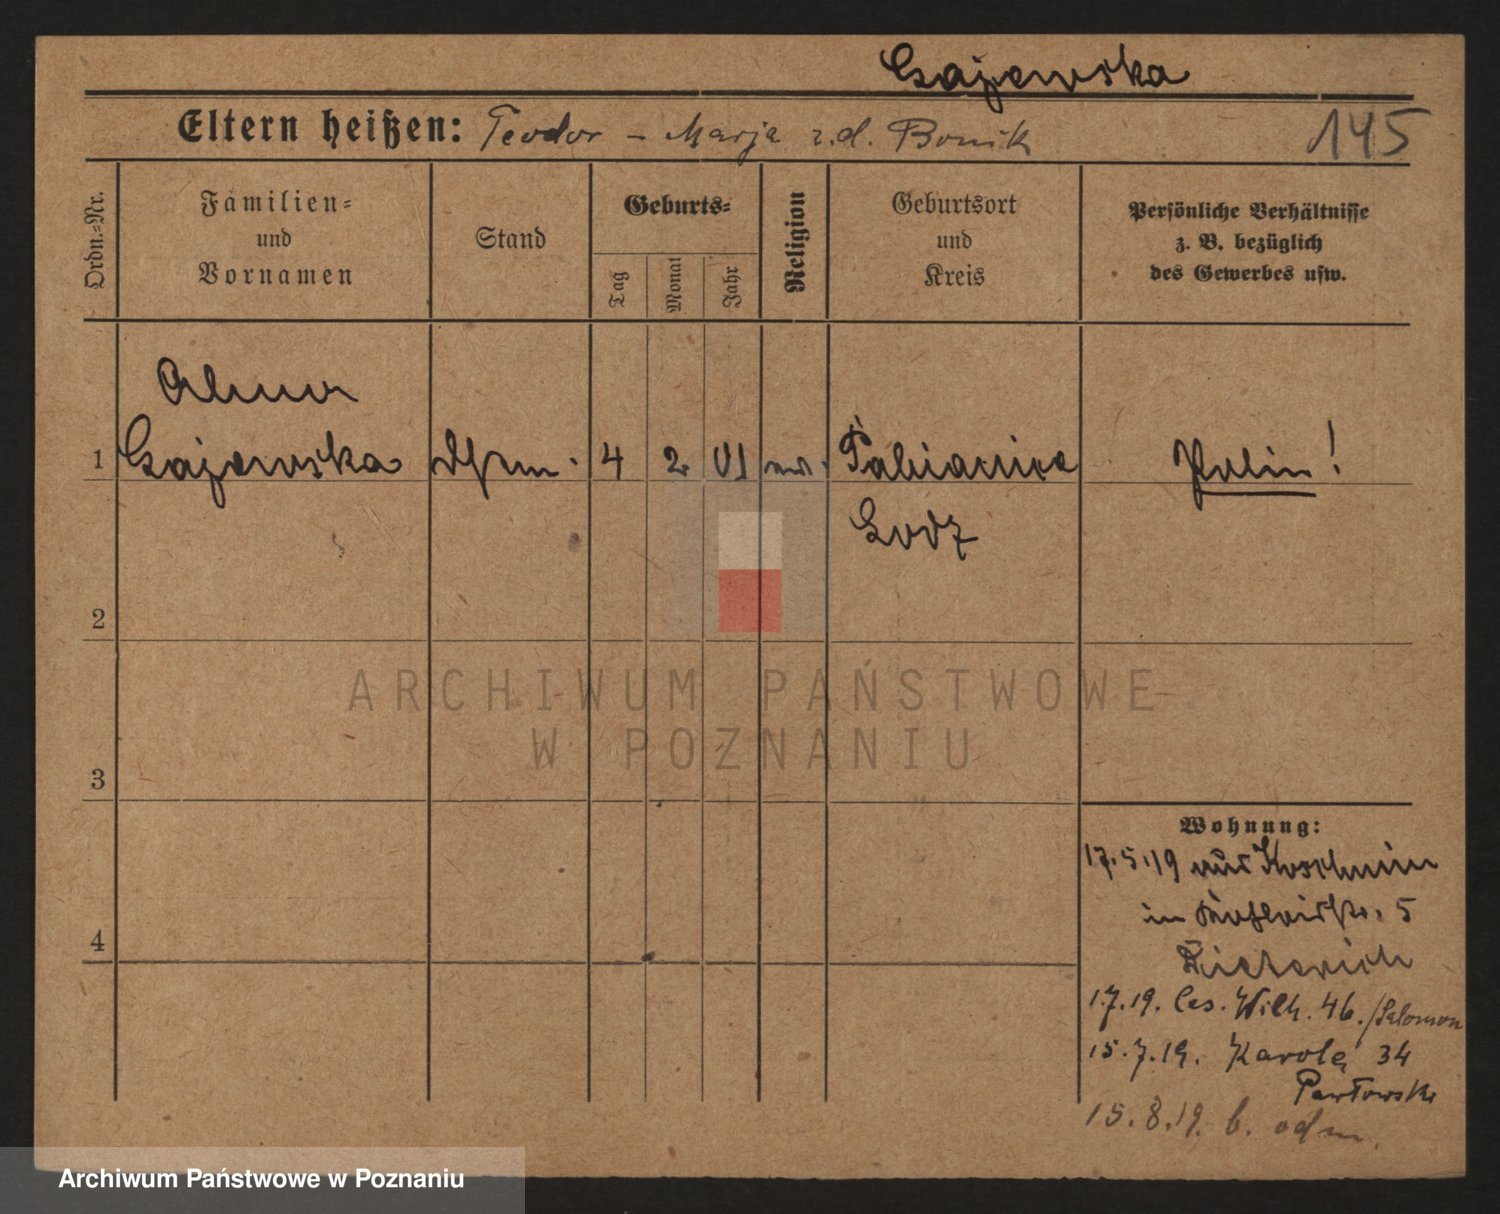 Gajewska
Eltern heißen: Teodor - Marja z.d. Bonik
145
Ordn.-Nr.
Familien-
und
Vornamen
Stand
Geburts-
Tag
Monat
Jahr
Religion
Geburtsort
und
Kreis
Persönliche Verhältnisse
z. B. bezüglich
des Gewerbes usw.
1
Gajewska
4
2
01
Pabianice
Polin!
Lodz
2
ARCHIWUM PAŃSTWOWE
W POZNANIU
3
Wohnung:
17.5.19 aus Koschmin
in 5
Dieterich
4
1.7.19. Ces. Wilh. 46. / Salomon
15.7.19. Karola 34
Pawłowski
15.8.19. b. odm.
Archiwum Państwowe w Poznaniu